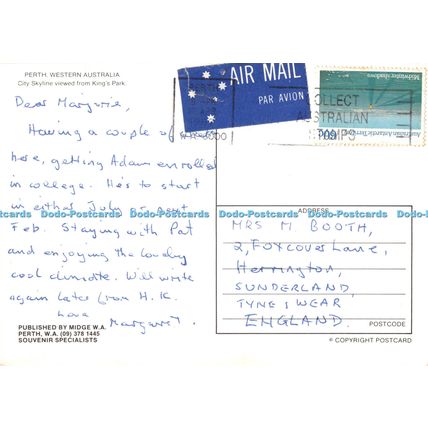 PERTH, WESTERN AUSTRALIA
City Skyline viewed from King's Park.
Dear Marjorie,
Having a couple of
here, getting Adam enrolled
in college. He's to start
in either July or next
Feb. Staying with Pat
and enjoying the lovely
cool climate. Will write
again later from H.K.
Love
Margaret.
PUBLISHED BY MIDGE W.A.
PERTH, W.A. (09) 378 1445
SOUVENIR SPECIALISTS
AIR MAIL
PAR AVION
COLLECT
AUSTRALIAN
STAMPS
Midwinter shadows
Australian Antarctic Territory
ADDRESS
MRS M BOOTH,
2, FOXCOVER Lane,
Herrington,
SUNDERLAND,
TYNE & WEAR
ENGLAND.
POSTCODE
© COPYRIGHT POSTCARD
Dodo-Postcards Dodo-Postcards Dodo-Postcards Dodo-Postcards Dodo-Postcards